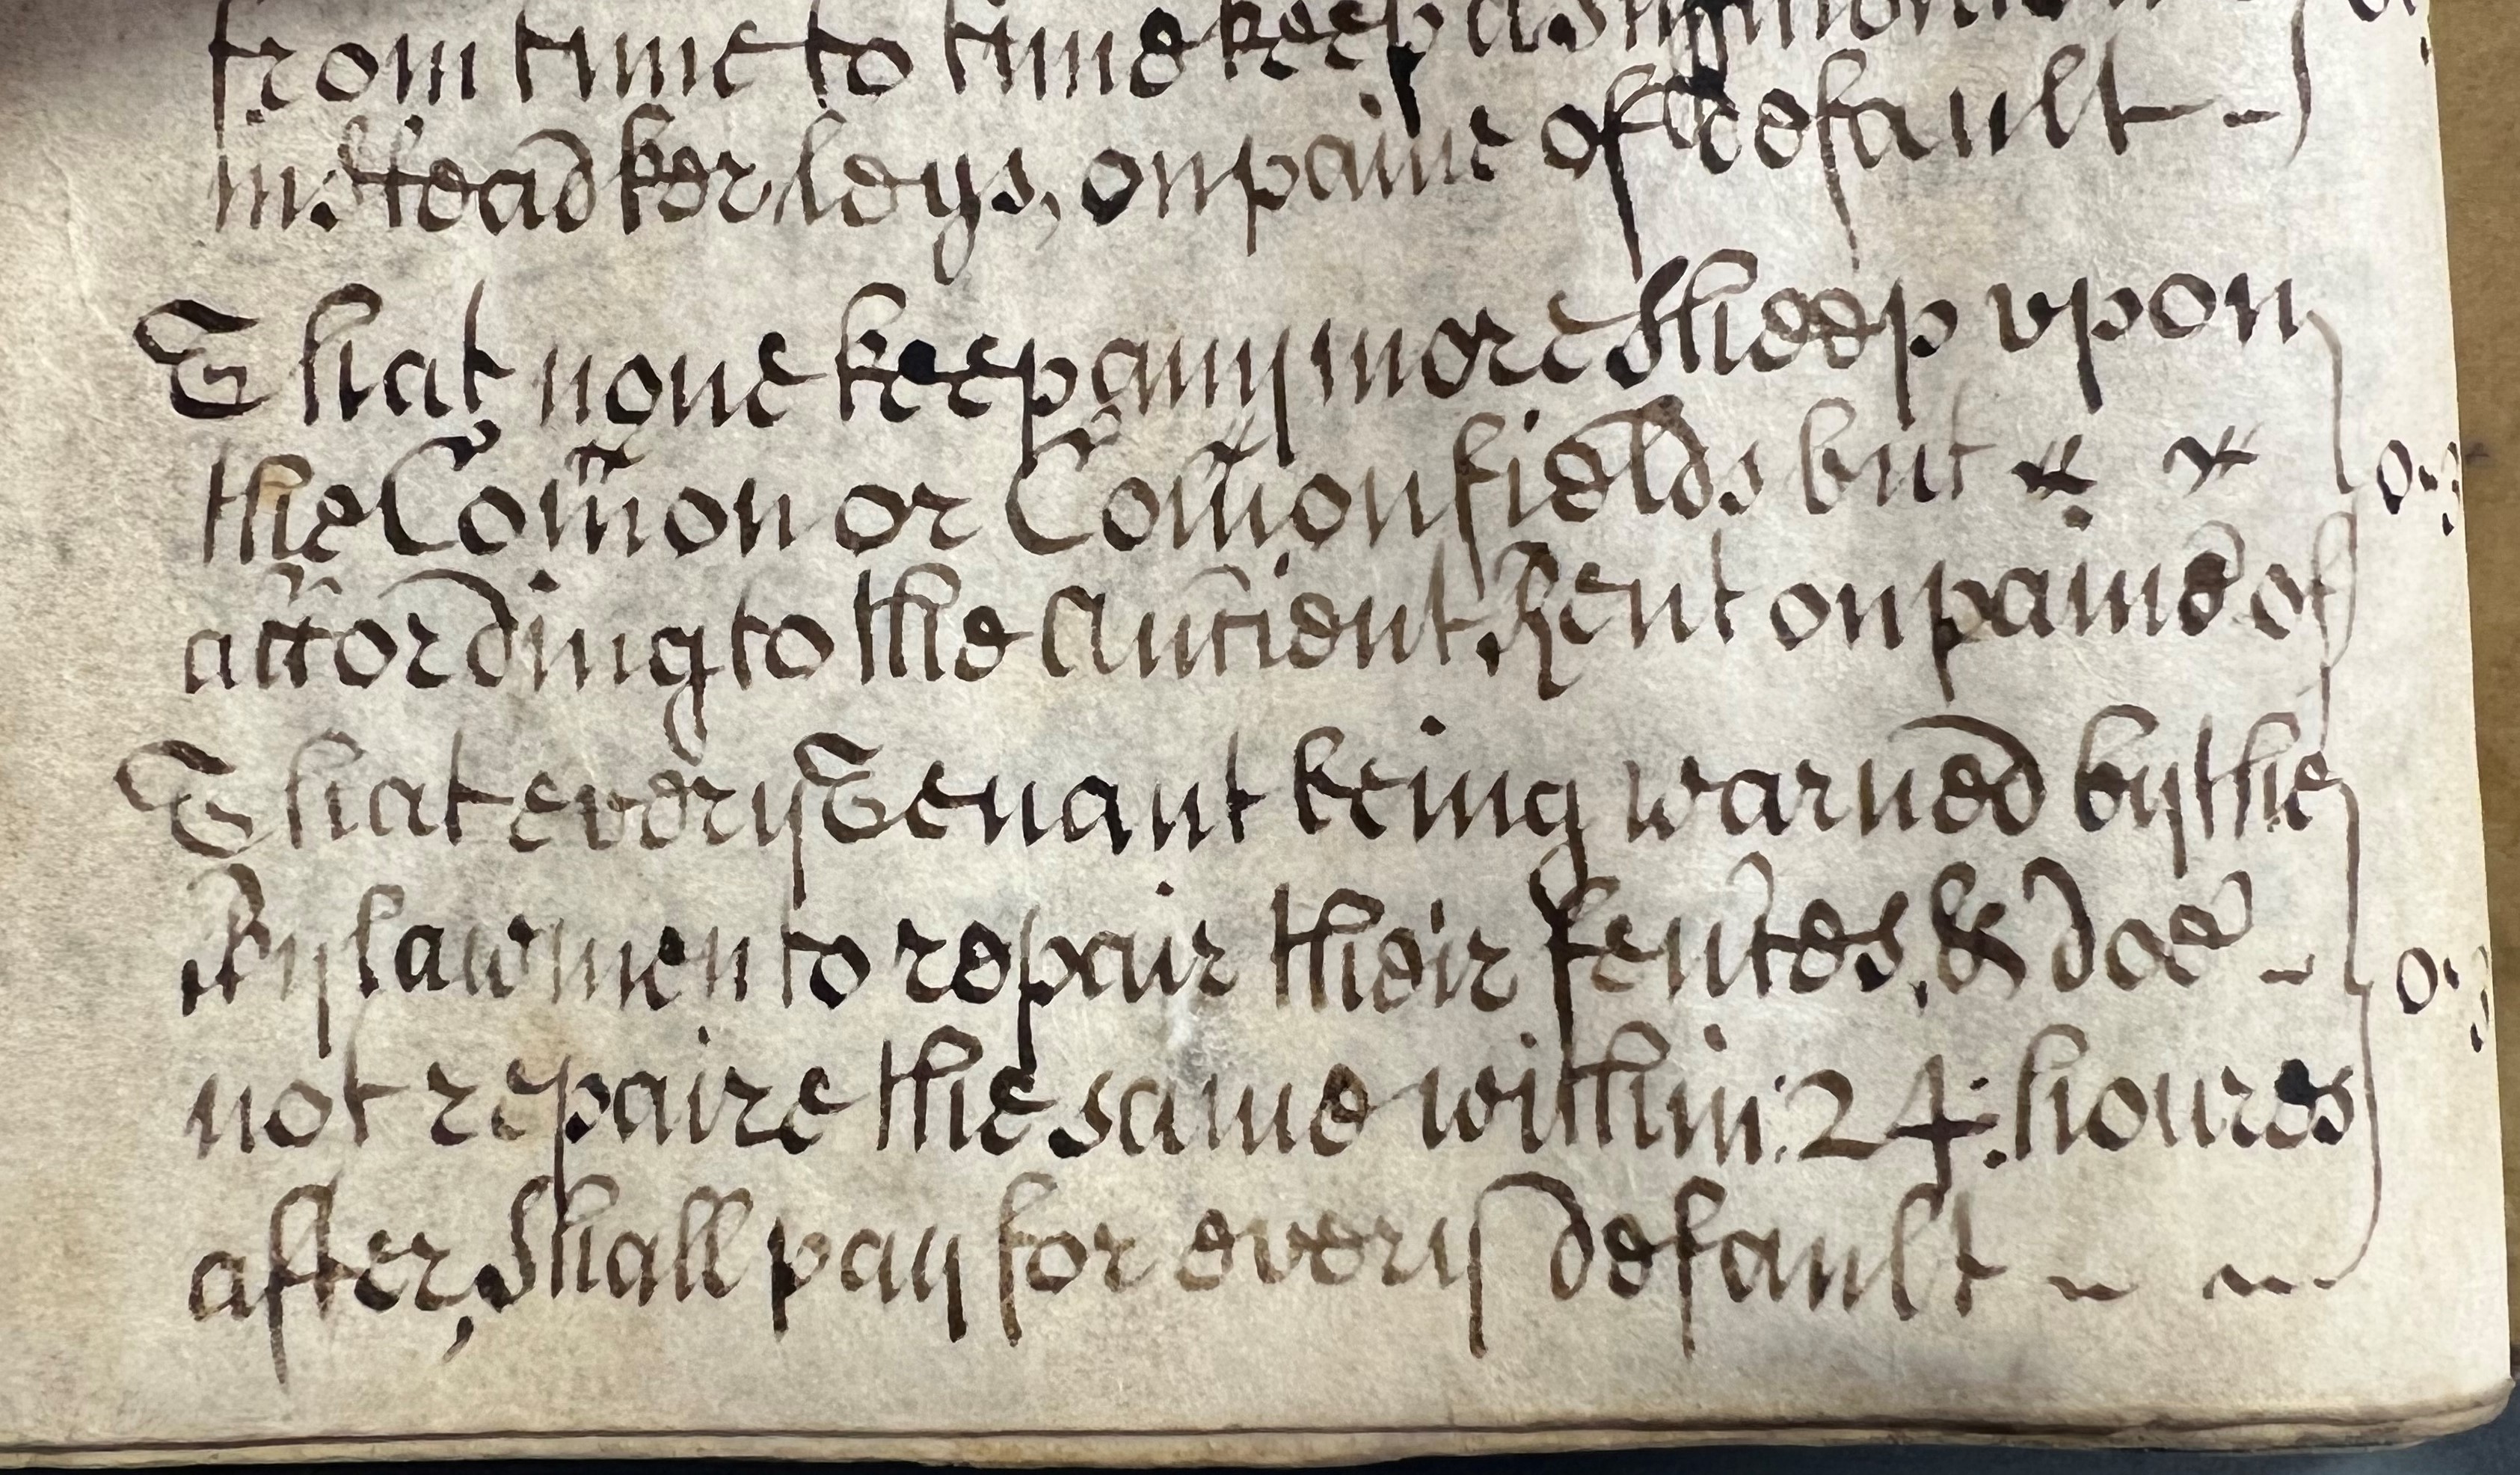 from time to time keep a sufficient
instead kerleys, on paine of default -
That none keep any more Sheep vpon
the Com̃on or Com̃on fields but
according to the Auncient Rent on paine of
That every Tenant being warned by the
Bylawmen to repair their fences, & doe -
not repaire the same within :24: houres
after, Shall pay for every default - -
0:3
0:3